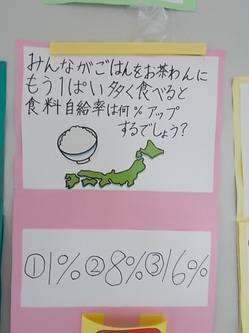 みんながごはんをお茶わんに
もう1ぱい多く食べると
食料自給率は何%アップ
するでしょう?
①1%②8%③16%